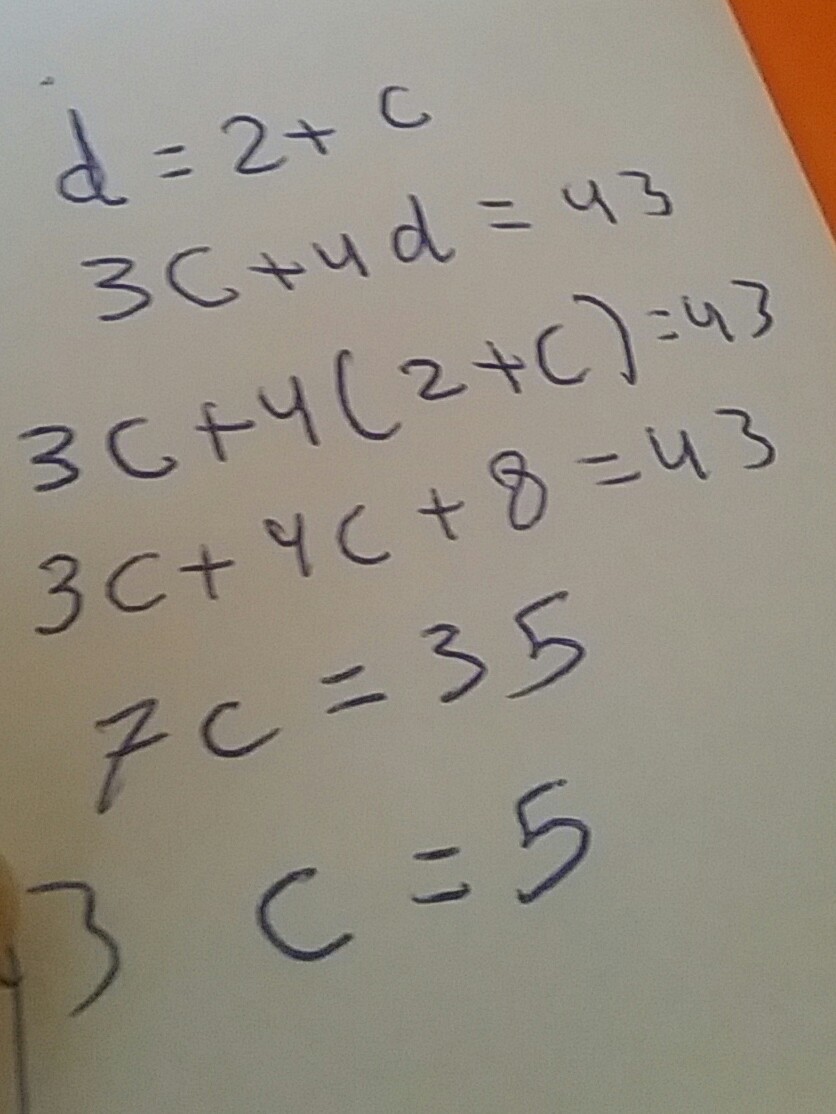 d = 2 + c
3c + 4d = 43
3c + 4(2 + c) = 43
3c + 4c + 8 = 43
7c = 35
3 c = 5